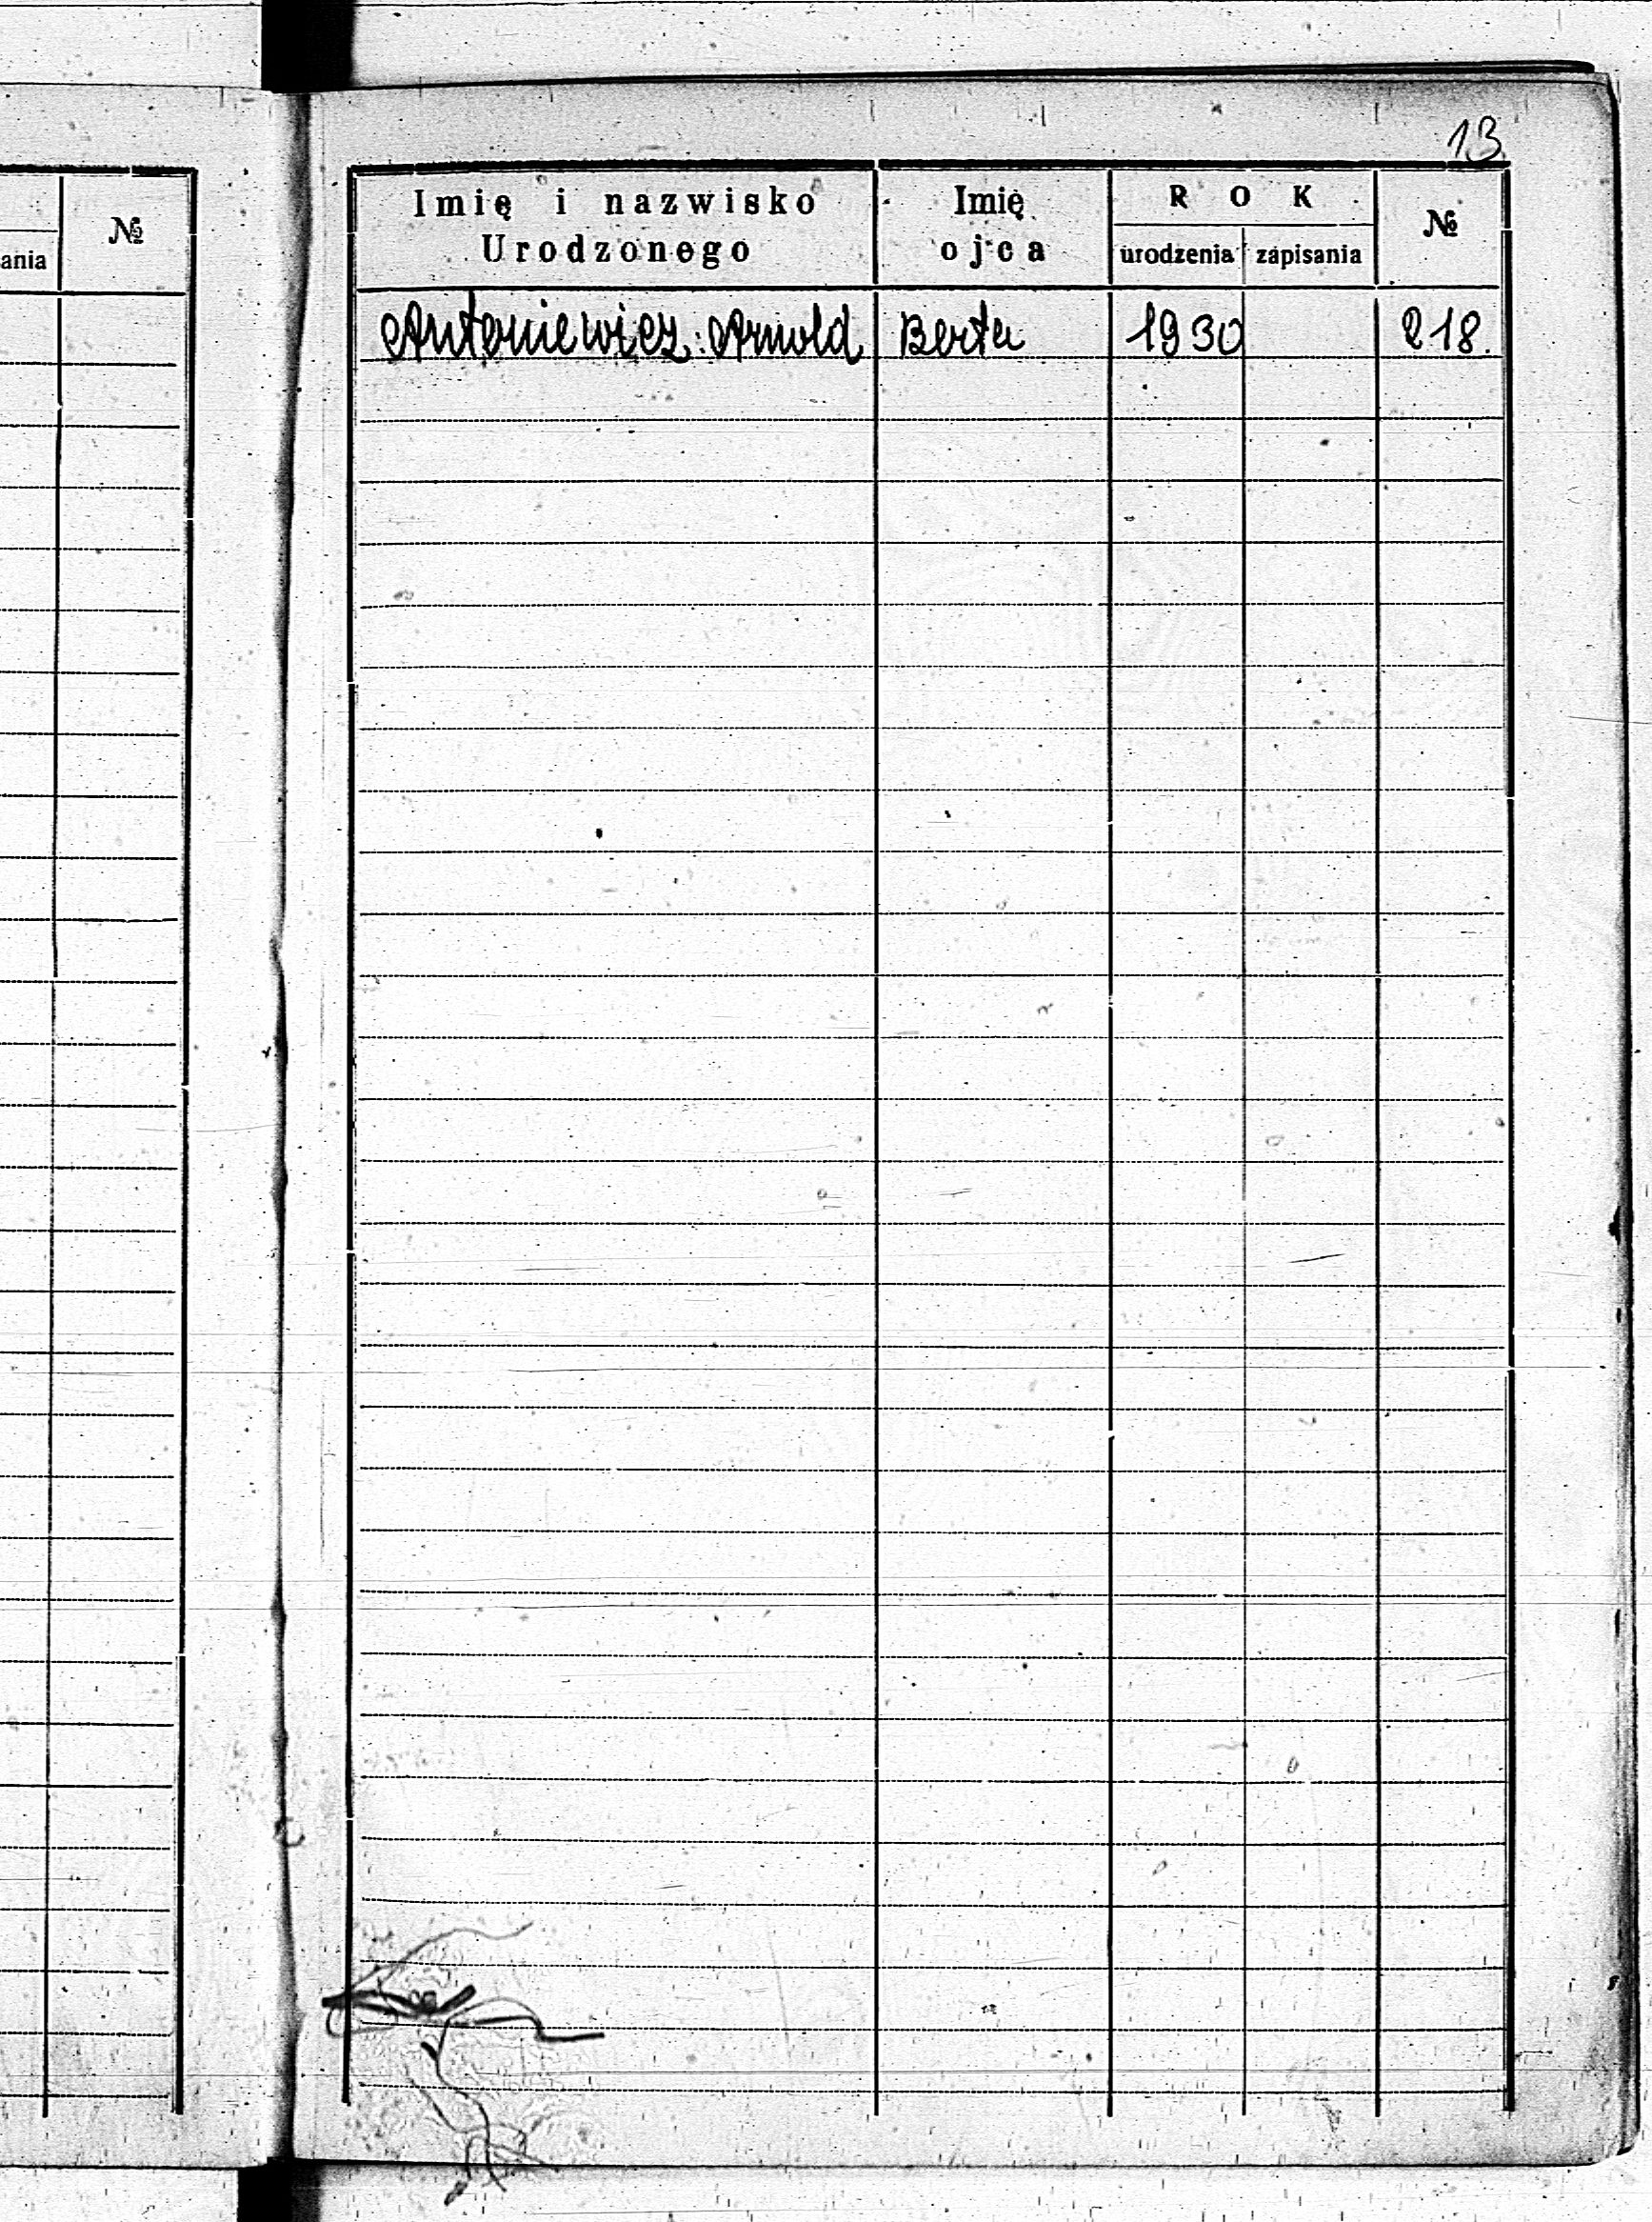 13
ania
№
Imię i nazwisko Urodzonego
Imię ojca
ROK
urodzenia
zapisania
№
Antoniewicz Arnold Berta 1930 218.